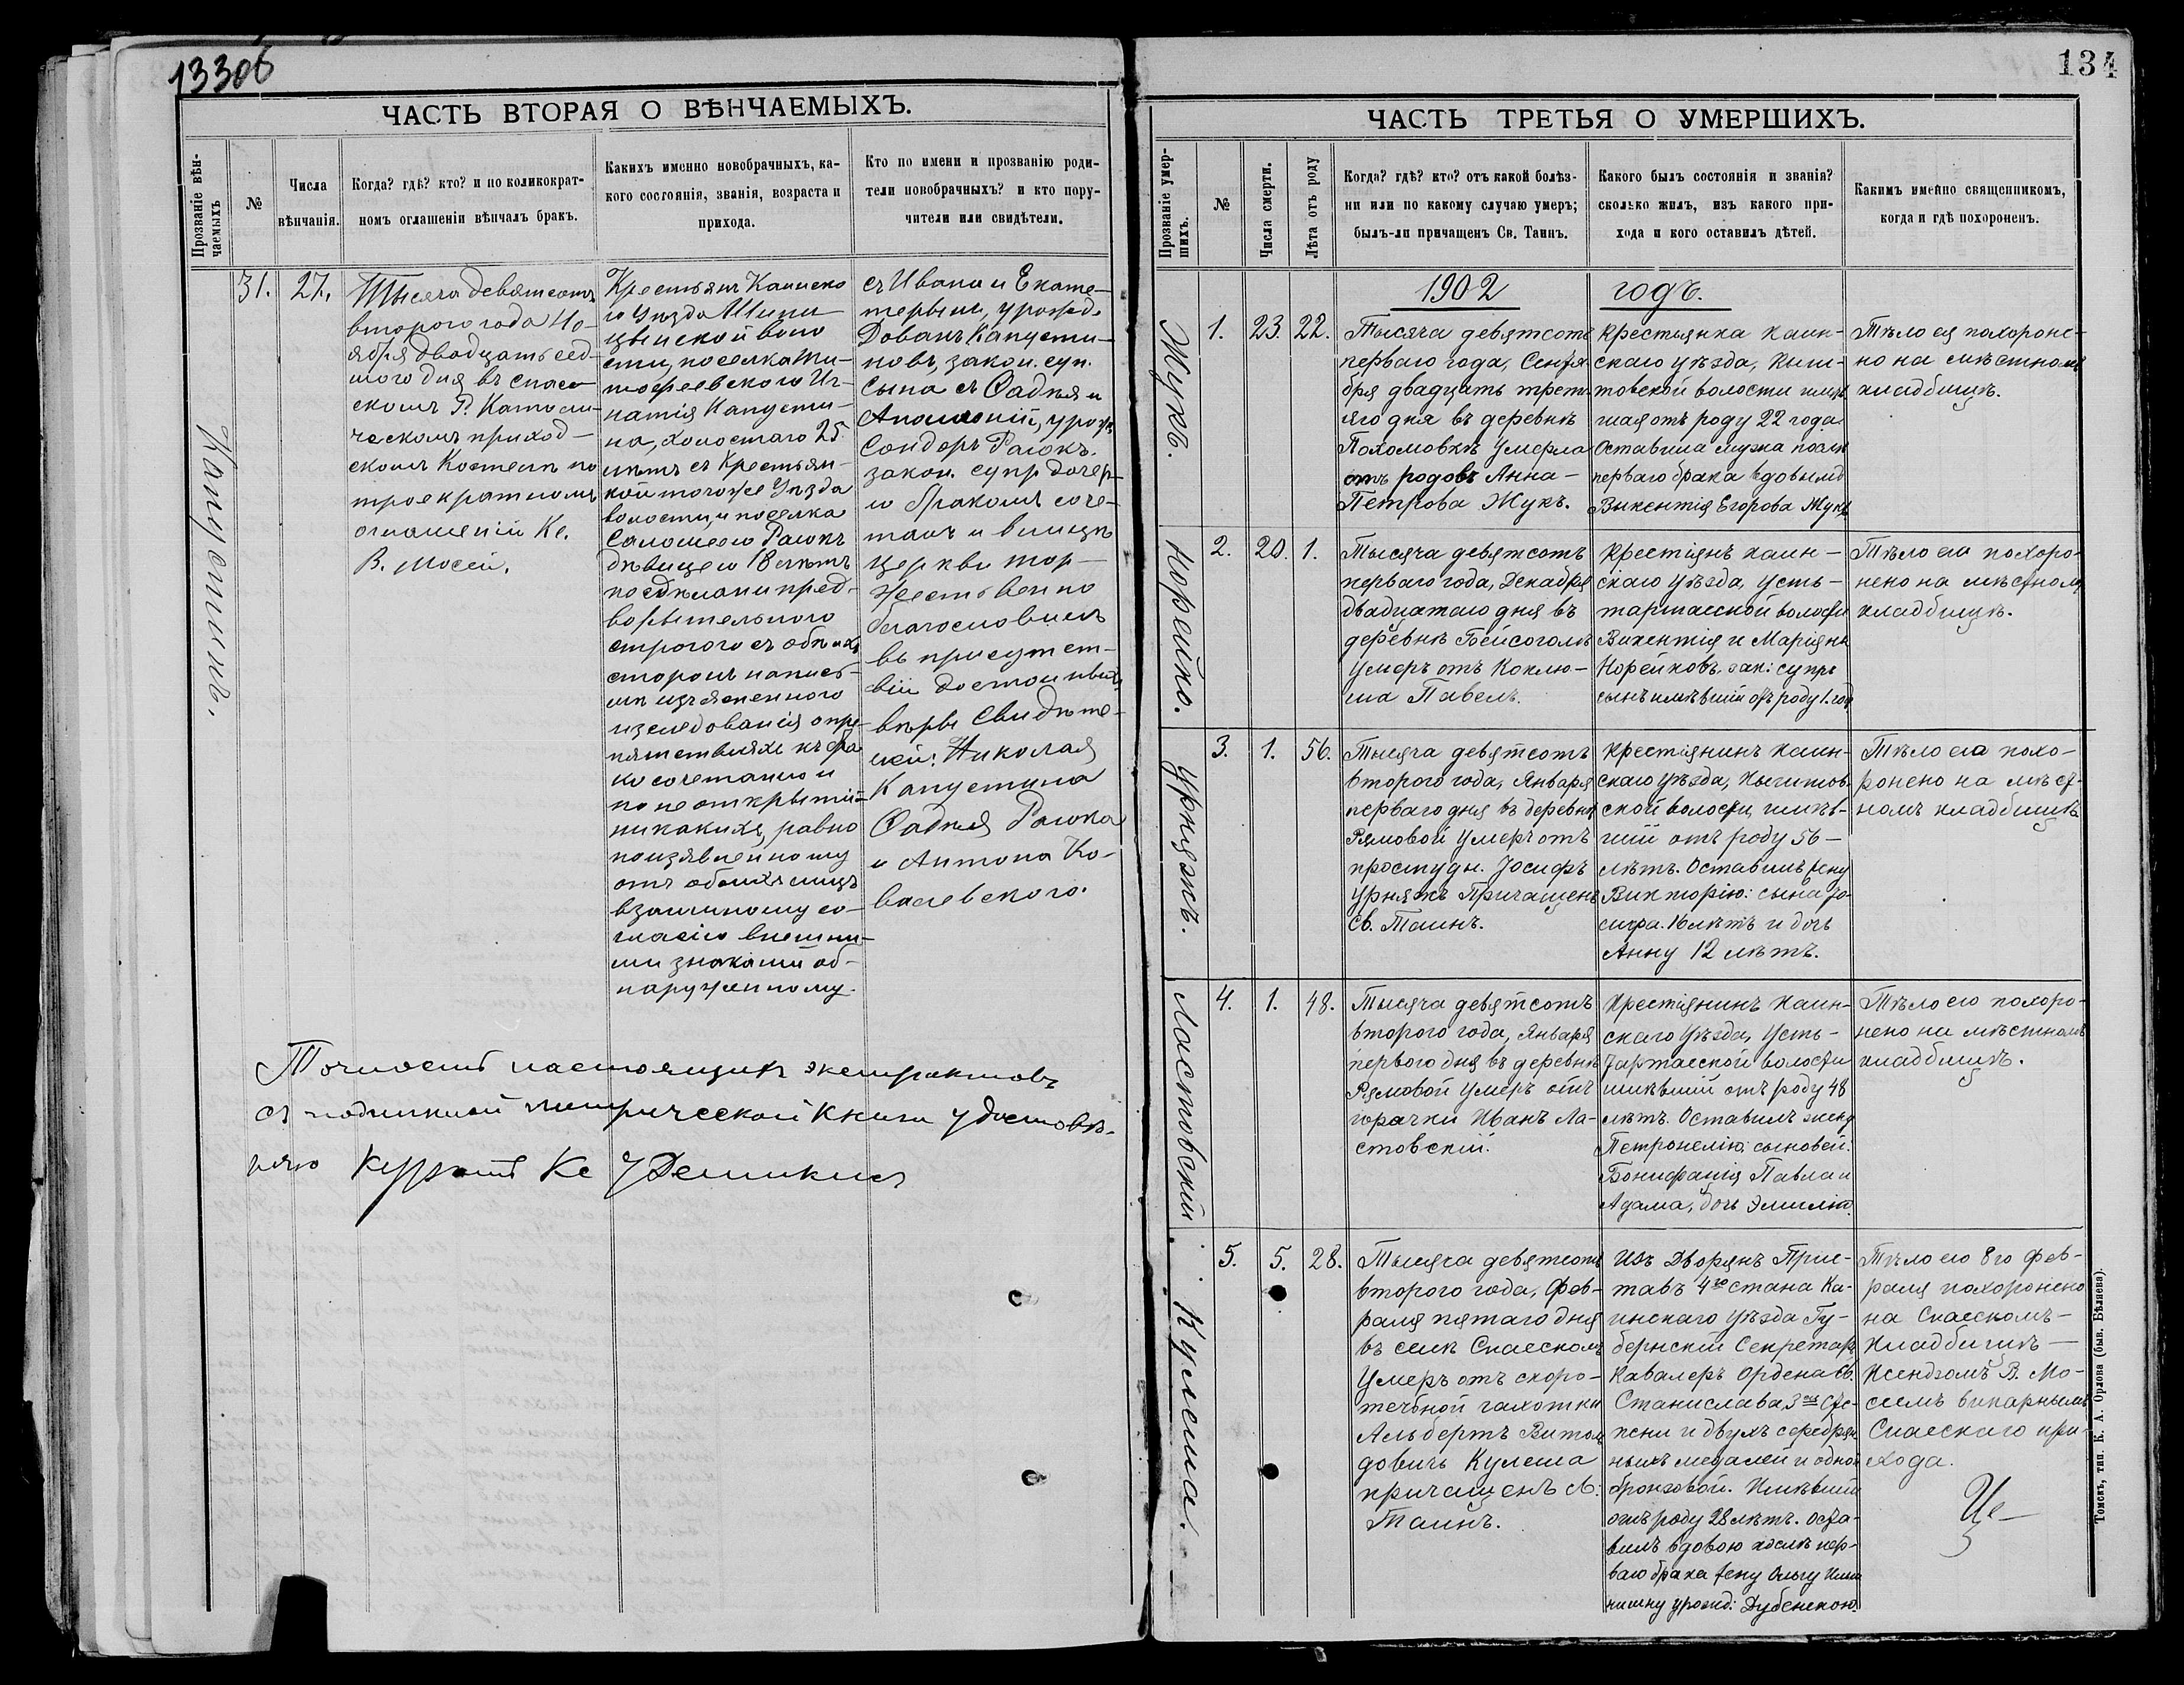 133об
ЧАСТЬ ВТОРАЯ О ВѢНЧАЕМЫХЪ.
Прозваніе вѣн-
чаемыхъ
№
Числа
вѣнчанія.
Когда? гдѣ? кто? и по коликократ-
номъ оглашеніи вѣнчалъ бракъ.
Какихъ именно новобрачныхъ, ка-
кого состоянія, званія, возраста и
прихода.
Кто по имени и прозванію роди-
тели новобрачныхъ? и кто пору-
чители или свидѣтели.
Капустинъ.
31.
27.
Тысяча девятсотъ
второго года Но-
ября двадцать сед-
мого дня въ Спас-
скомъ Р. Католи-
ческомъ приход-
скомъ Костелѣ по
троекратномъ
оглашеніи Кс.
В. Мосей.
Крестьянъ Каинско
го уѣзда
цынской воло
сти, поселка Ти-
мофеевского Иг-
натія Капусти-
на, холостаго 25
лѣтъ съ Крестьян-
кой тогоже Уѣзда
волости и поселка
Саломеею Раюкъ
дѣвицею 18 лѣтъ
по сдѣлани пред-
ворительного
строгого съ обѣихъ
сторонъ
изслѣдованія о пре-
пятствіяхъ къ бра
косочетанію и
по не открытій
никакихъ, равно
по изявленному
отъ обоихъ лицъ
взаимному со-
гласію внешни-
ми знаками об-
наруженному.
съ Ивана и Екате-
терыны, урожд.
Дованъ Капусти-
новъ, закон. суп.
сына съ Фадѣя и
Аполоній, урожд.
Сондоръ Раюкъ.
закон. супр дочер-
ю бракомъ соче-
талъ и влицѣ
церкви тор-
жественно
благословилъ
въ присутст-
віи достойныхъ
вѣры Свидѣте-
лей: Николая
Капустина
Фадѣя Раюка
и Антона Ко-
валевского.
Точность настоящихъ экстрактовъ
съ подлинной метрической книги удостовѣ-
ряю Куратъ Кс
134
ЧАСТЬ ТРЕТЬЯ О УМЕРШИХЪ.
Прозваніе умер-
шихъ.
№
Числа смерти.
Лѣта отъ роду
Когда? гдѣ? кто? отъ какой болѣз-
ни или по какому случаю умеръ;
былъ-ли причащенъ Св. Таинъ.
Какого былъ состоянія и званія?
сколько жилъ, изъ какого при-
хода и кого оставилъ дѣтей.
Какимъ именно священникомъ,
когда и гдѣ похороненъ.
1902 годъ.
Жукъ.
1.
23.
22.
Тысяча девятсотъ
перваго года, Сентя
бря двадцать треть
яго дня въ деревнѣ
Пахомовкѣ умерла
отъ родовъ Анна-
Петрова Жукъ.
Крестьянка Каин-
скаго уѣзда, Кыш-
товской волости имѣв
шая отъ роду 22 года
Оставила мужа послѣ
перваго брака вдовымъ
Викентія Егорова Жукъ
Тѣло ея похороне-
но на мѣстномъ
кладбищѣ.
Норейко.
2.
20.
1.
Тысяча девятсотъ
перваго года, Декабря
двадцатаго дня въ
деревнѣ Бейсоголѣ
умеръ отъ Коклю-
ша Павелъ.
Крестіянъ Каин-
скаго уѣзда, Усть-
тартасской волости
Викентія и Маріянн
Норейковъ, зак: супр
сынъ имѣвшій отъ роду 1. год
Тѣло его похоро-
нено на мѣстномъ
кладбищѣ.
Урняжъ.
3.
1.
56.
Тысяча девятсотъ
второго года, Января
перваго дня въ деревнѣ
Рямовой умеръ отъ
простуды. Іосифъ
Урняжъ Причащенъ
Св. Таинъ.
Крестіянинъ Каин-
скаго уѣзда, Кыштов
ской волости, имѣв-
шій отъ роду 56-
лѣтъ. Оставилъ жену
Викторію: сына Іо-
сифа. 16 лѣтъ и дочь
Анну 12 лѣтъ.
Тѣло его похо-
ронено на мѣст-
номъ кладбищѣ
Ластовскій.
4.
1.
48.
Тысяча девятсотъ
второго года, Января
первого дня въ деревнѣ
Рямовой умеръ отъ
горачки Иванъ Ла-
стовскій.
Крестіянинъ Каин-
скаго уѣзда, Усть-
Тартасской волости
имѣвшій отъ роду 48
лѣтъ. Оставилъ жену
Петронелію: сыновей:
Бонифація Павла и
Адама, дочь Эмилію.
Тѣло его похоро-
нено на мѣстномъ
кладбищѣ.
Кулеша.
5.
5.
28.
Тысяча девятсотъ
второго года, Фев-
раля пятаго дня
въ селѣ Спасскомъ
Умеръ отъ скоро-
течной чахотки
Альбертъ Витоль
довичъ Кулеша
причащенъ св:
Таинъ.
Изъ Дворянъ При-
ставъ 4го стана Ка-
инскаго уѣзда Гу-
бернскій Секретаръ
Кавалеръ Ордена Св.
Станислава 3ей Сте-
пени и двухъ серебрян
ныхъ медалей и одной
бронзовой. Имѣвшій
отъ роду 28 лѣтъ. Оста-
вилъ вдовою послѣ пер-
ваго брака жену Ольгу Ильи
нишну урожд: Дубенскою.
Тѣло его 8го Фев-
раля похоронено
на Спасскомъ-
Кладбищѣ-
Ксендзомъ В. Мо-
сеемъ викарнымъ
Спасскаго при-
хода.
Томскъ, тип. К. А. Орлова (быв. Бѣляева).